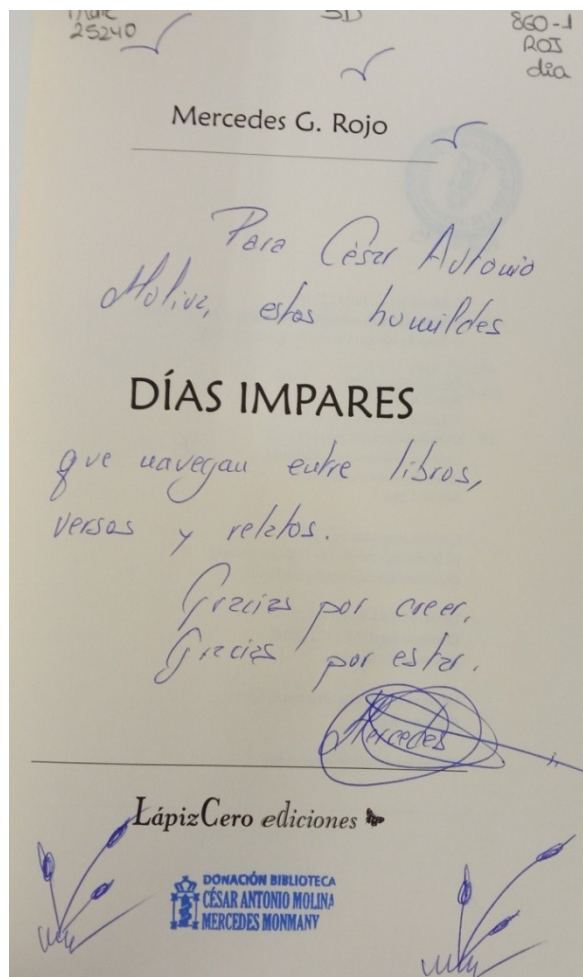 25240
SD
860-1
ROJ
dia
Mercedes G. Rojo
Para César Antonio
Molina, estos humildes
DÍAS IMPARES
que navegan entre libros,
versos y relatos.
Gracias por creer.
Gracias por estar.
Mercedes
LápizCero ediciones
DONACIÓN BIBLIOTECA
CÉSAR ANTONIO MOLINA
MERCEDES MONMANY